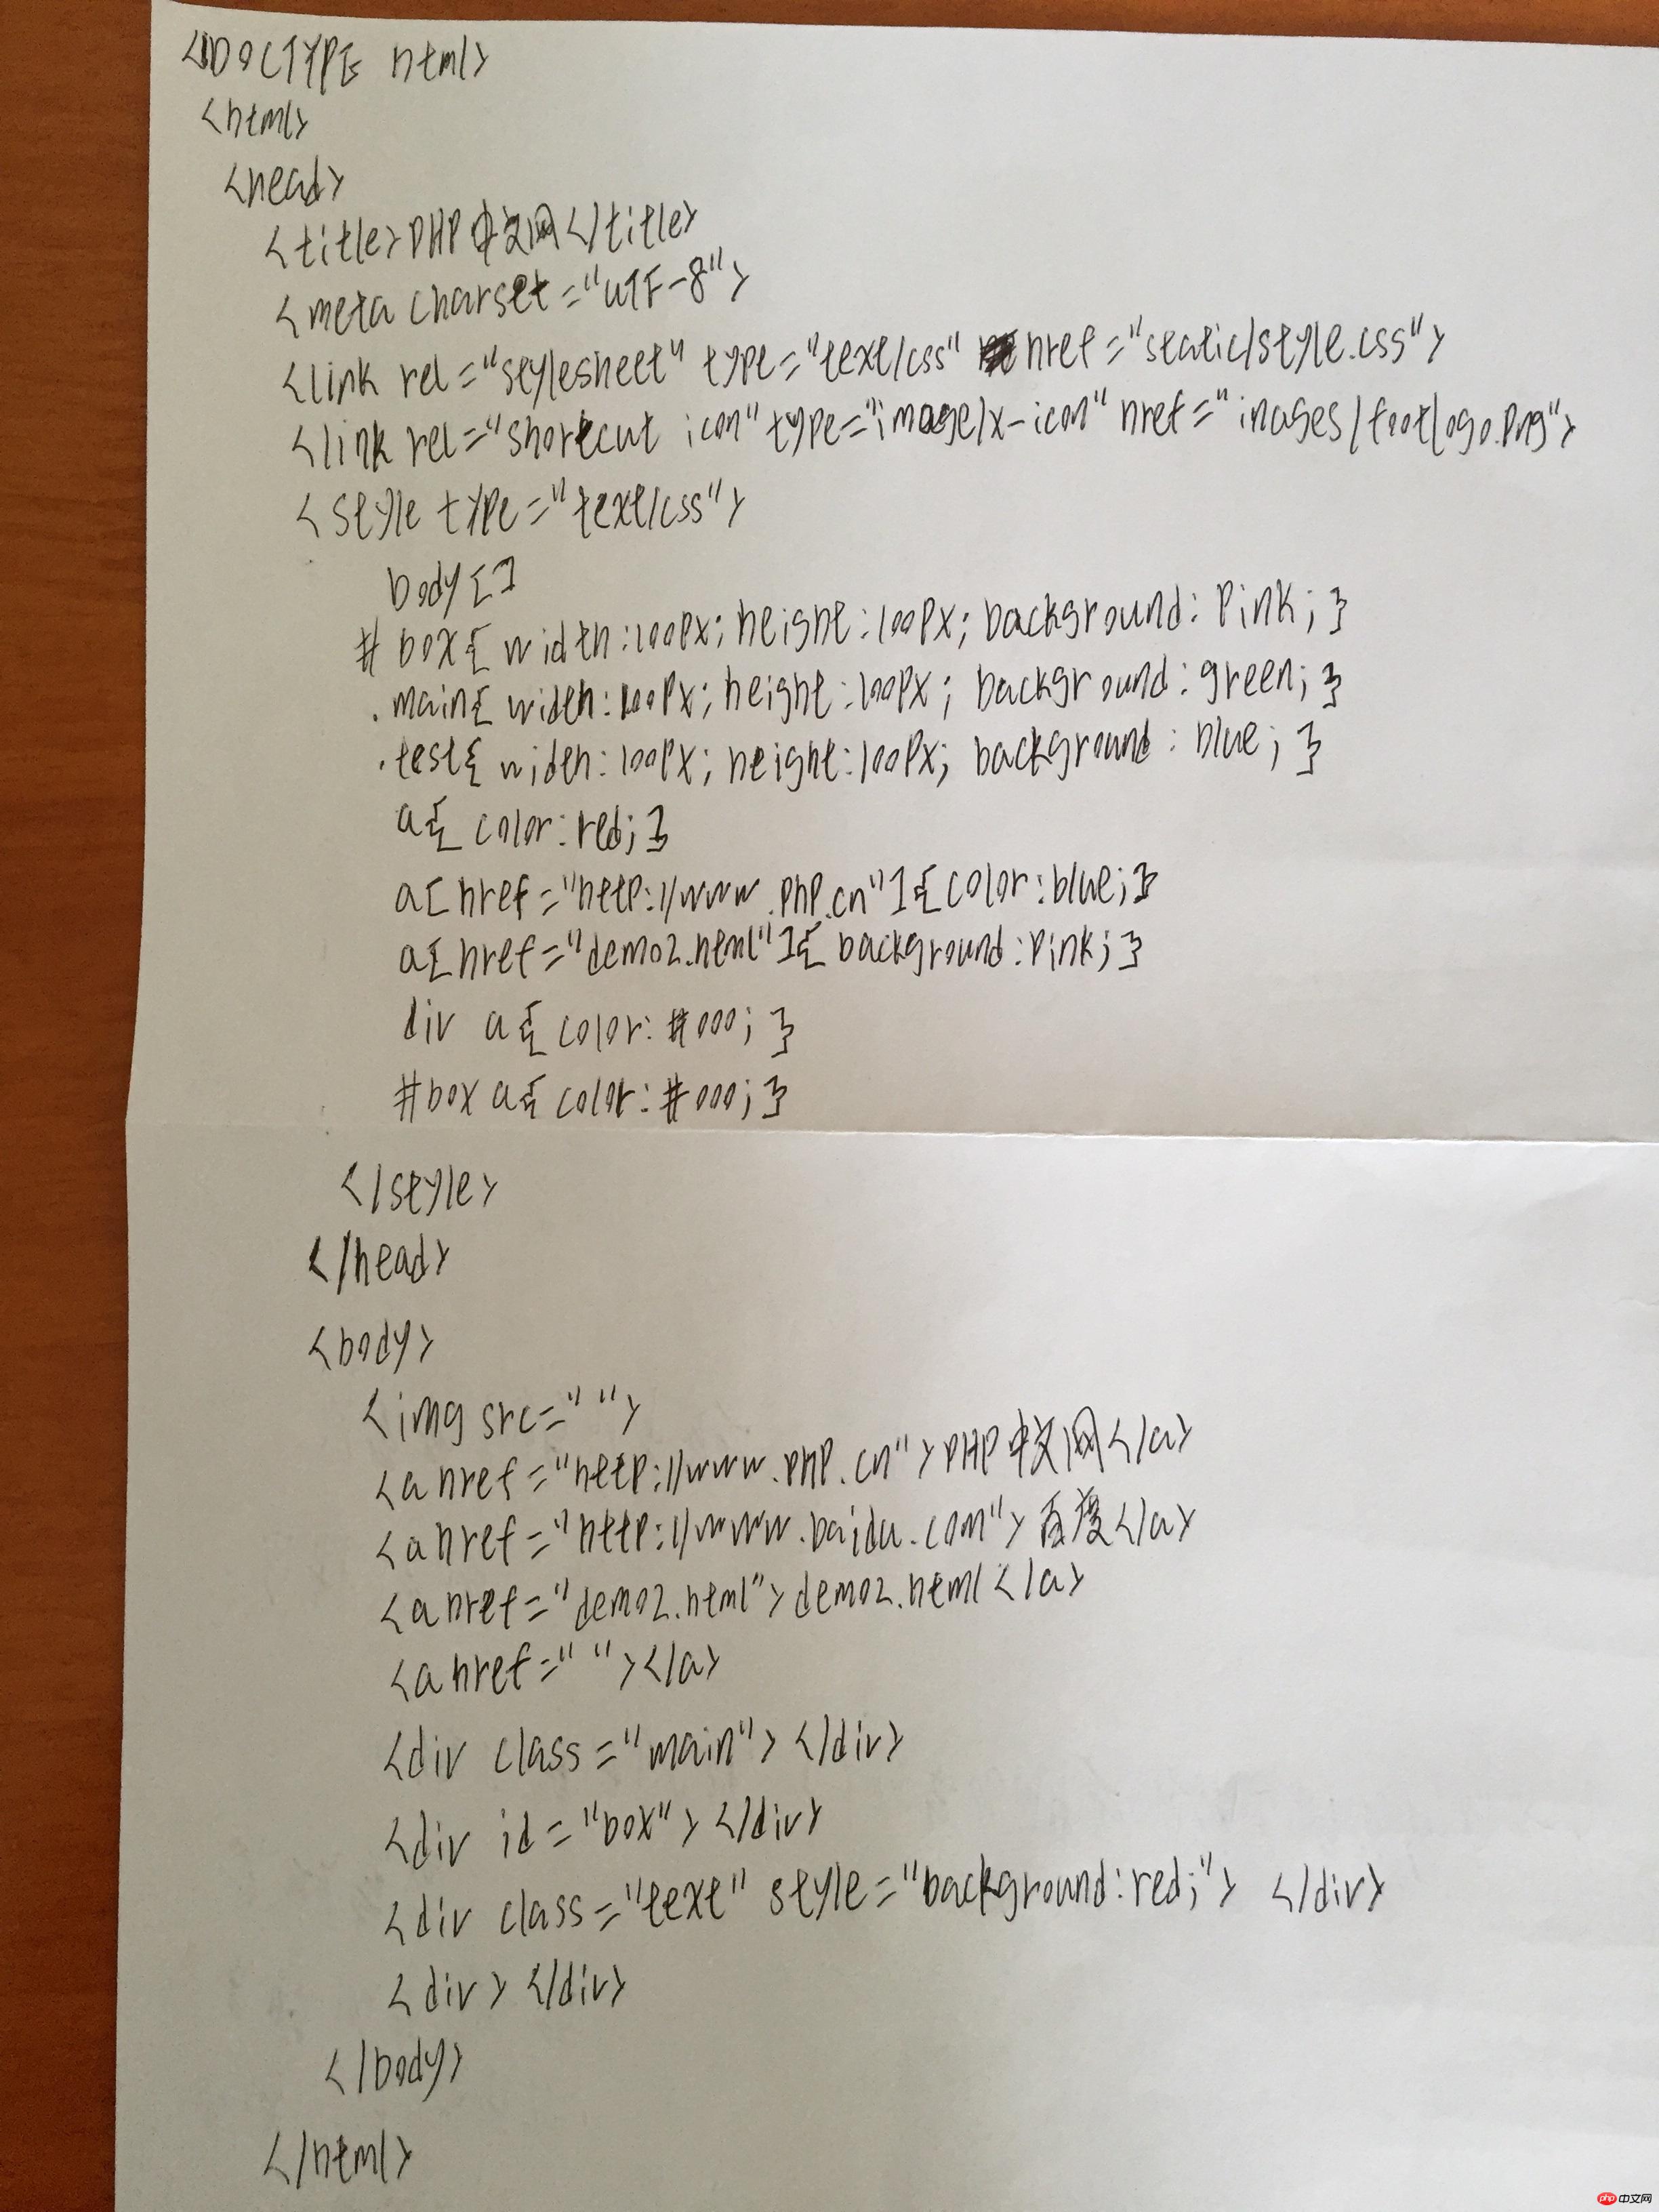 <!DOCTYPE html>
<html>
<head>
<title>PHP中文网</title>
<meta charset="UTF-8">
<link rel="stylesheet" type="text/css" href="static/style.css">
<link rel="shortcut icon" type="image/x-icon" href="images/footlogo.png">
<style type="text/css">
body[]
#box{width:100px;height:100px;background:pink;}
.main{width:100px;height:100px;background:green;}
.test{width:100px;height:100px;background:blue;}
a{color:red;}
a[href="http://www.php.cn"]{color:blue;}
a[href="demo2.html"]{background:pink;}
div a{color:#000;}
#box a{color:#000;}
</style>
</head>
<body>
<img src="">
<a href="http://www.php.cn">PHP中文网</a>
<a href="http://www.baidu.com">百度</a>
<a href="demo2.html">demo2.html</a>
<a href=""></a>
<div class="main"></div>
<div id="box"></div>
<div class="text" style="background:red;"></div>
<div></div>
</body>
</html>
php中文网